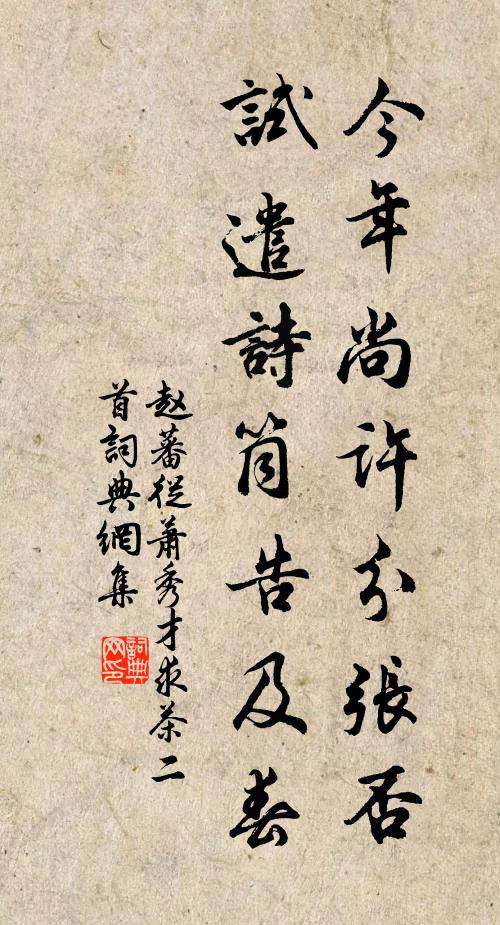 今年尚许分張否
試遣詩筒告及春
赵蕃從蕭秀才求茶二
首詞典網集
詞典网印